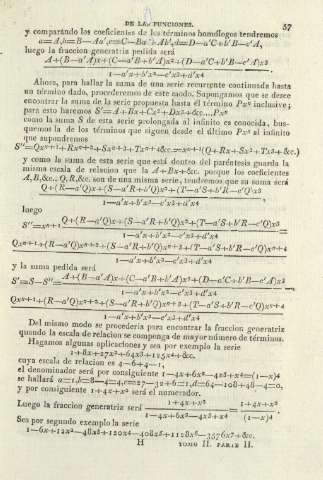 DE LAS FUNCIONES. 57
y comparando los coeficientes de los términos homólogos tendremos
a=A,b=B—Aa',c=C—Ba'+Ab',d=D—a'C+b'B—c'A,
luego la fraccion generatriz pedida será
A+(B—a'A)x+(C—a'B+b'A)x²+(D—a'C+b'B—c'A)x³
1—a'x+b'x²—c'x³+d'x⁴
Ahora, para hallar la suma de una serie recurrente continuada hasta
un término dado, procederemos de este modo. Supongamos que se desee
encontrar la suma de la serie propuesta hasta el término Pxⁿ inclusive;
para esto haremos S'=A+Bx+Cx²+Dx³+&c....Pxⁿ
como la suma S de esta serie prolongada al infinito es conocida, bus-
quemos la de los términos que siguen desde el último Pxⁿ al infinito
que supondremos
S''=Qxⁿ⁺¹+Rxⁿ⁺²+Sxⁿ⁺³+Txⁿ⁺⁴&c.=xⁿ⁺¹(Q+Rx+Sx²+Tx³+&c.)
y como la suma de esta serie que está dentro del paréntesis guarda la
misma escala de relacion que la A+Bx+&c. porque los coeficientes
A,B,&c., Q,R,&c. son de una misma serie, tendremos que su suma será
Q+(R—a'Q)x+(S—a'R+b'Q)x²+(T—a'S+b'R—c'Q)x³
1—a'x+b'x²—c'x³+d'x⁴
luego
S''=xⁿ⁺¹ Q+(R—a'Q)x+(S—a'R+b'Q)x²+(T—a'S+b'R—c'Q)x³ =
1—a'x+b'x²—c'x³+d'x⁴
Qxⁿ⁺¹+(R—a'Q)xⁿ⁺²+(S—a'R+b'Q)xⁿ⁺³+(T—a'S+b'R—c'Q)xⁿ⁺⁴
1—a'x+b'x²—c'x³+d'x⁴
y la suma pedida será
S'=S—S''= A+(B—a'A)x+(C—a'B+b'A)x²+(D—a'C+b'B—c'A)x³
1—a'x+b'x²—c'x³+d'x⁴
Qxⁿ⁺¹+(R—a'Q)xⁿ⁺²+(S—a'R+b'Q)xⁿ⁺³+(T—a'S+b'R—c'Q)xⁿ⁺⁴
1—a'x+b'x²—c'x³+d'x⁴
Del mismo modo se procederia para encontrar la fraccion generatriz
quando la escala de relacion se componga de mayor número de términos.
Hagamos algunas aplicaciones y sea por exemplo la serie
1+8x+27x²+64x³+125x⁴+&c.
cuya escala de relacion es 4—6+4—1,
el denominador será por consiguiente 1—4x+6x²—4x³+x⁴=(1—x)⁴
se hallará a=1,b=8—4=4,c=27—32+6=1,d=64—108+48—4=0,
y por consiguiente 1+4x+x² será el numerador.
Luego la fraccion generatriz será 1+4x+x² = 1+4x+x²
1—4x+6x²—4x³+x⁴ (1—x)⁴
Sea por segundo exemplo la serie
1—6x+12x²—48x³+120x⁴—408x⁵+1128x⁶—3576x⁷+&c.
H TOMO II. PARTE II.